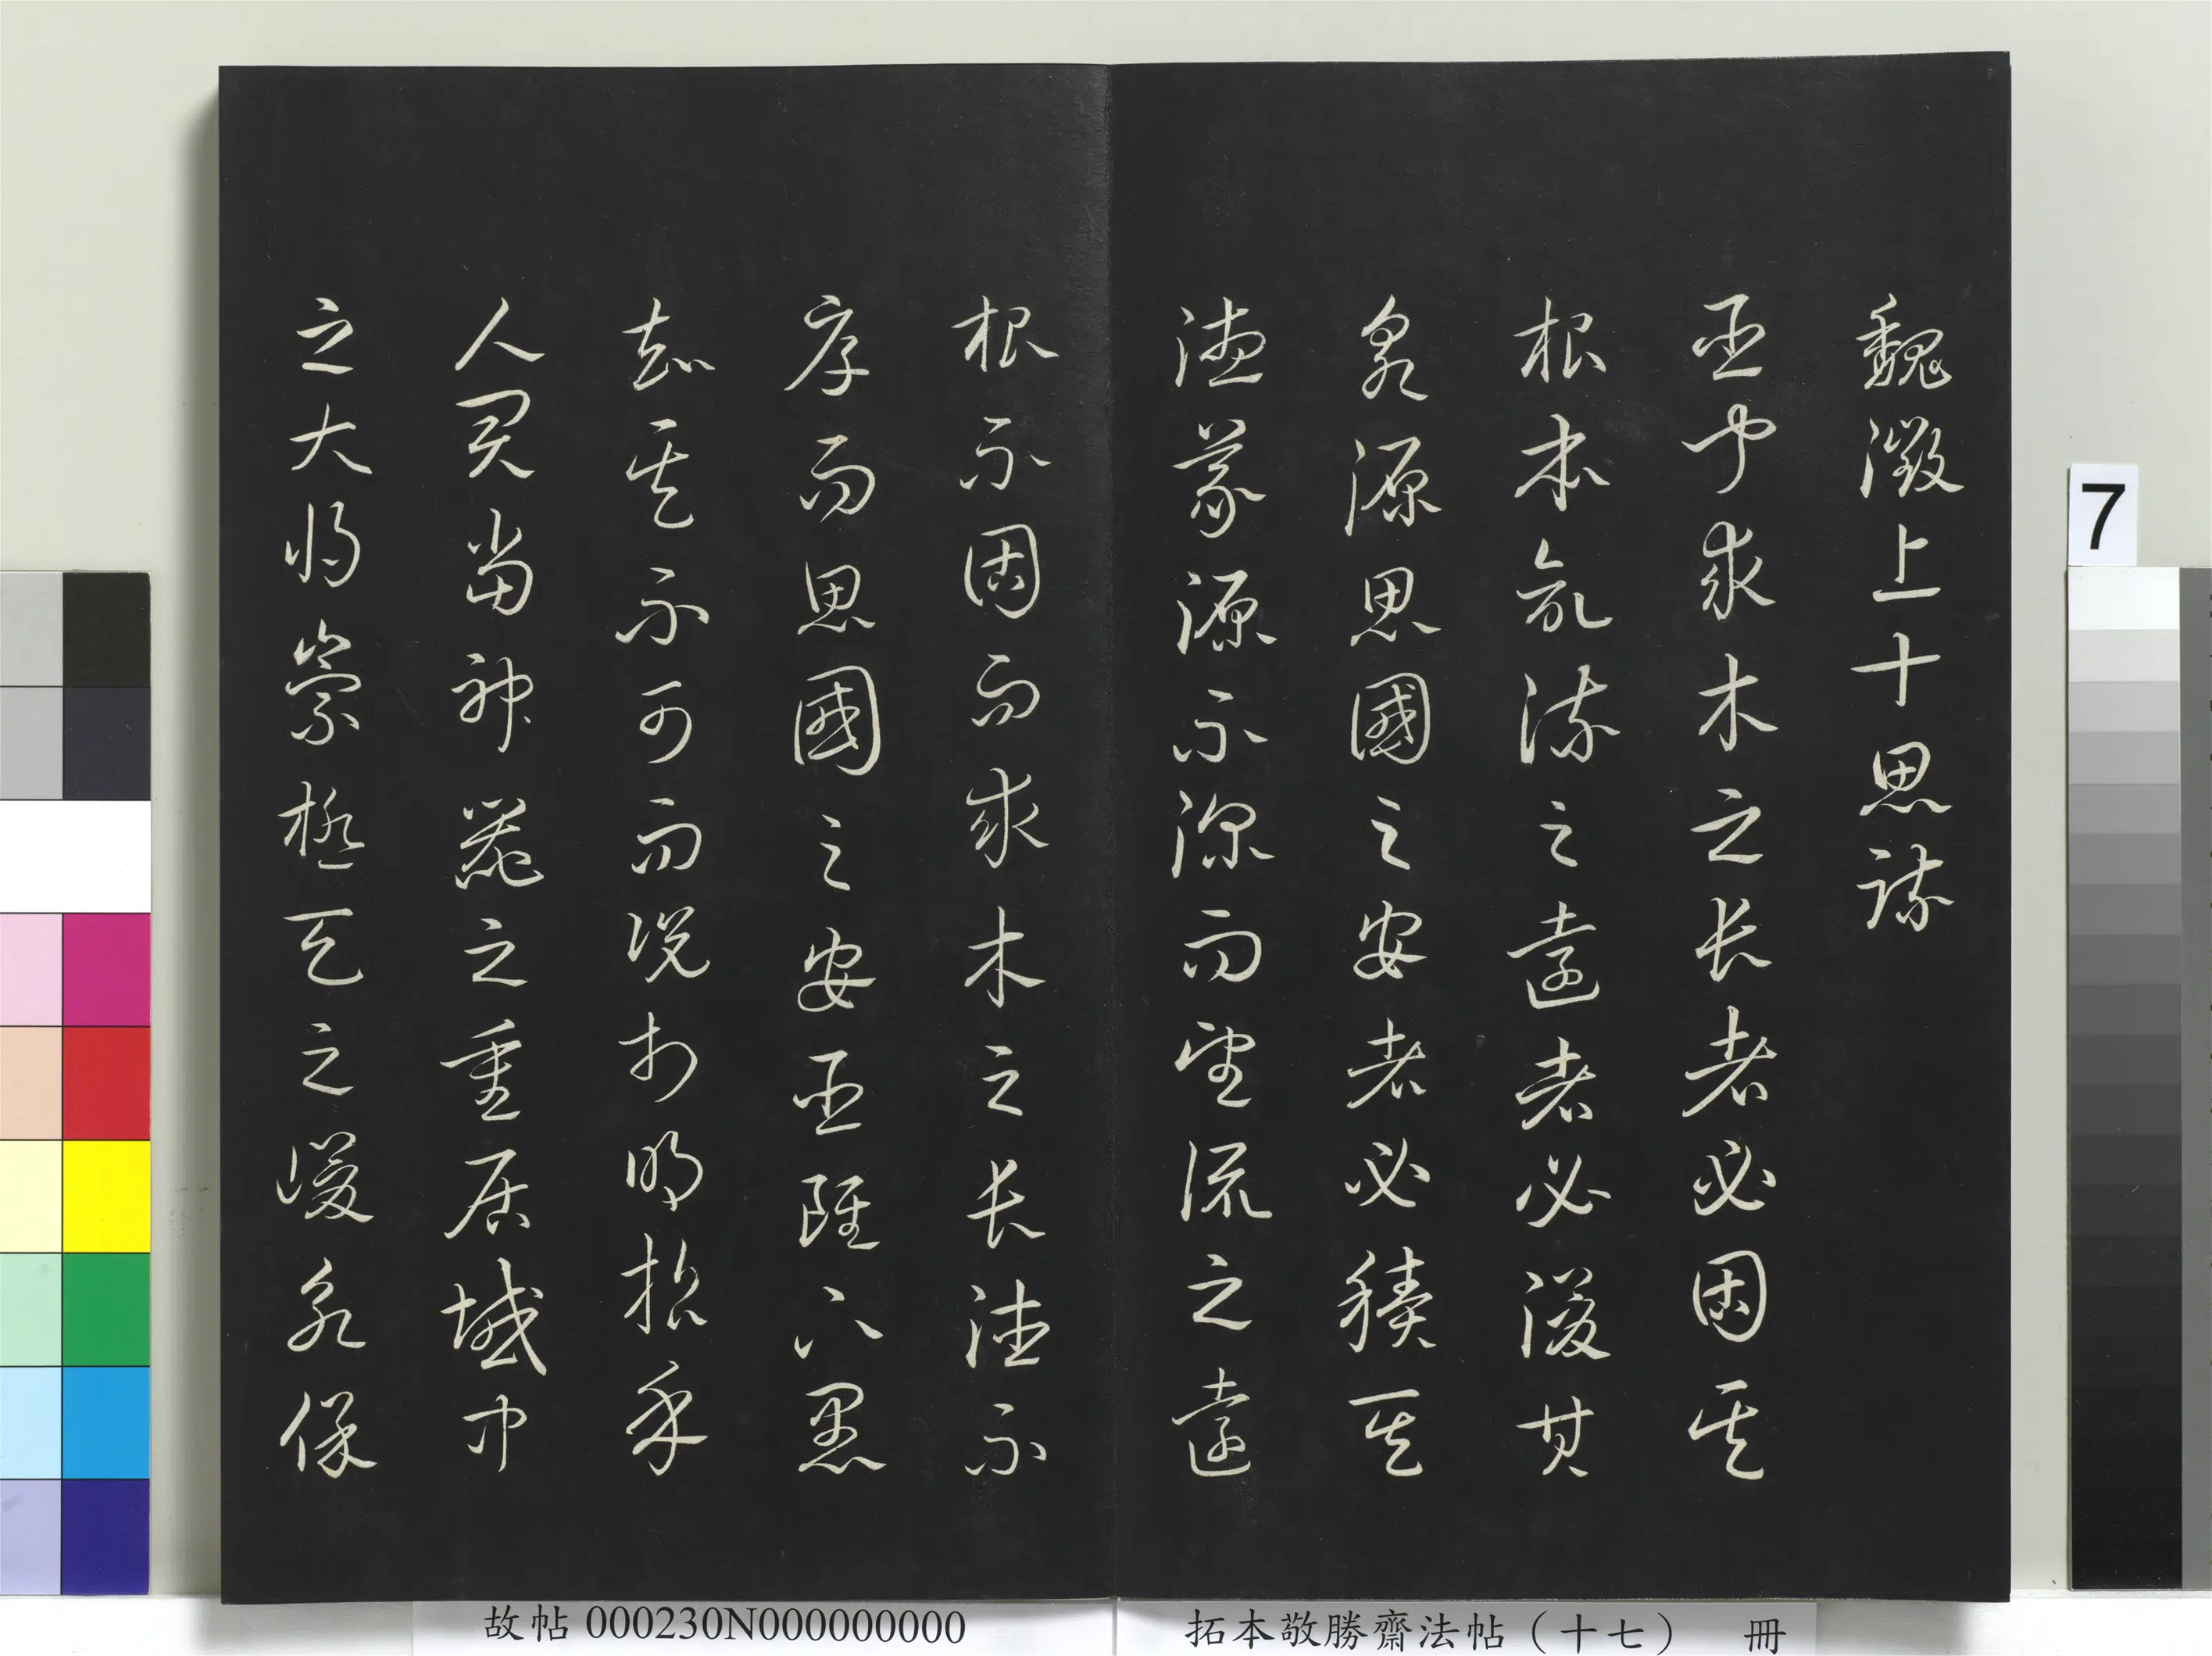 魏徵上十思疏
臣聞求木之長者必固其
根本欲流之遠者必浚其
泉源思國之安者必積其
德義源不深而望流之遠
根不固而求木之長德不
厚而思國之安臣雖下愚
知其不可而況於明哲乎
人君當神器之重居域中
之大將崇極天之峻永保
7
故帖 000230N000000000
拓本敬勝齋法帖（十七） 冊